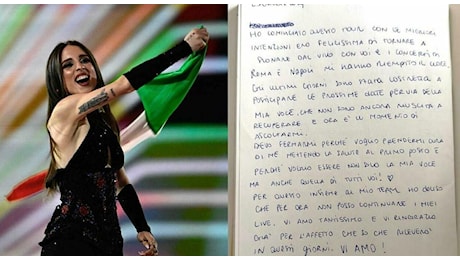 HO COMINCIATO QUESTO TOUR CON LE MIGLIORI
INTENZIONI ERO FELICISSIMA DI TORNARE A
SUONARE DAL VIVO CON VOI E I CONCERTI DI
ROMA E NAPOLI MI HANNO RIEMPITO IL CUORE.
GLI ULTIMI GIORNI SONO STATA COSTRETTA A
POSTICIPARE LE PROSSIME DATE PER VIA DELLA
MIA VOCE, CHE NON SONO ANCORA RIUSCITA A
RECUPERARE E ORA E' IL MOMENTO DI
ASCOLTARMI.
DEVO FERMARMI PERCHÉ VOGLIO PRENDERMI CURA
DI ME METTENDO LA SALUTE AL PRIMO POSTO E
PERCHÉ VOGLIO ESSERE NON SOLO LA MIA VOCE
MA ANCHE QUELLA DI TUTTI VOI! ♡
PER QUESTO INSIEME AL MIO TEAM, HO DECISO
CHE PER ORA NON POSSO CONTINUARE I MIEI
LIVE. VI AMO TANTISSIMO E VI RINGRAZIO
GIA' PER L'AFFETTO CHE SO CHE RICEVERO'
IN QUESTI GIORNI. VI AMO!